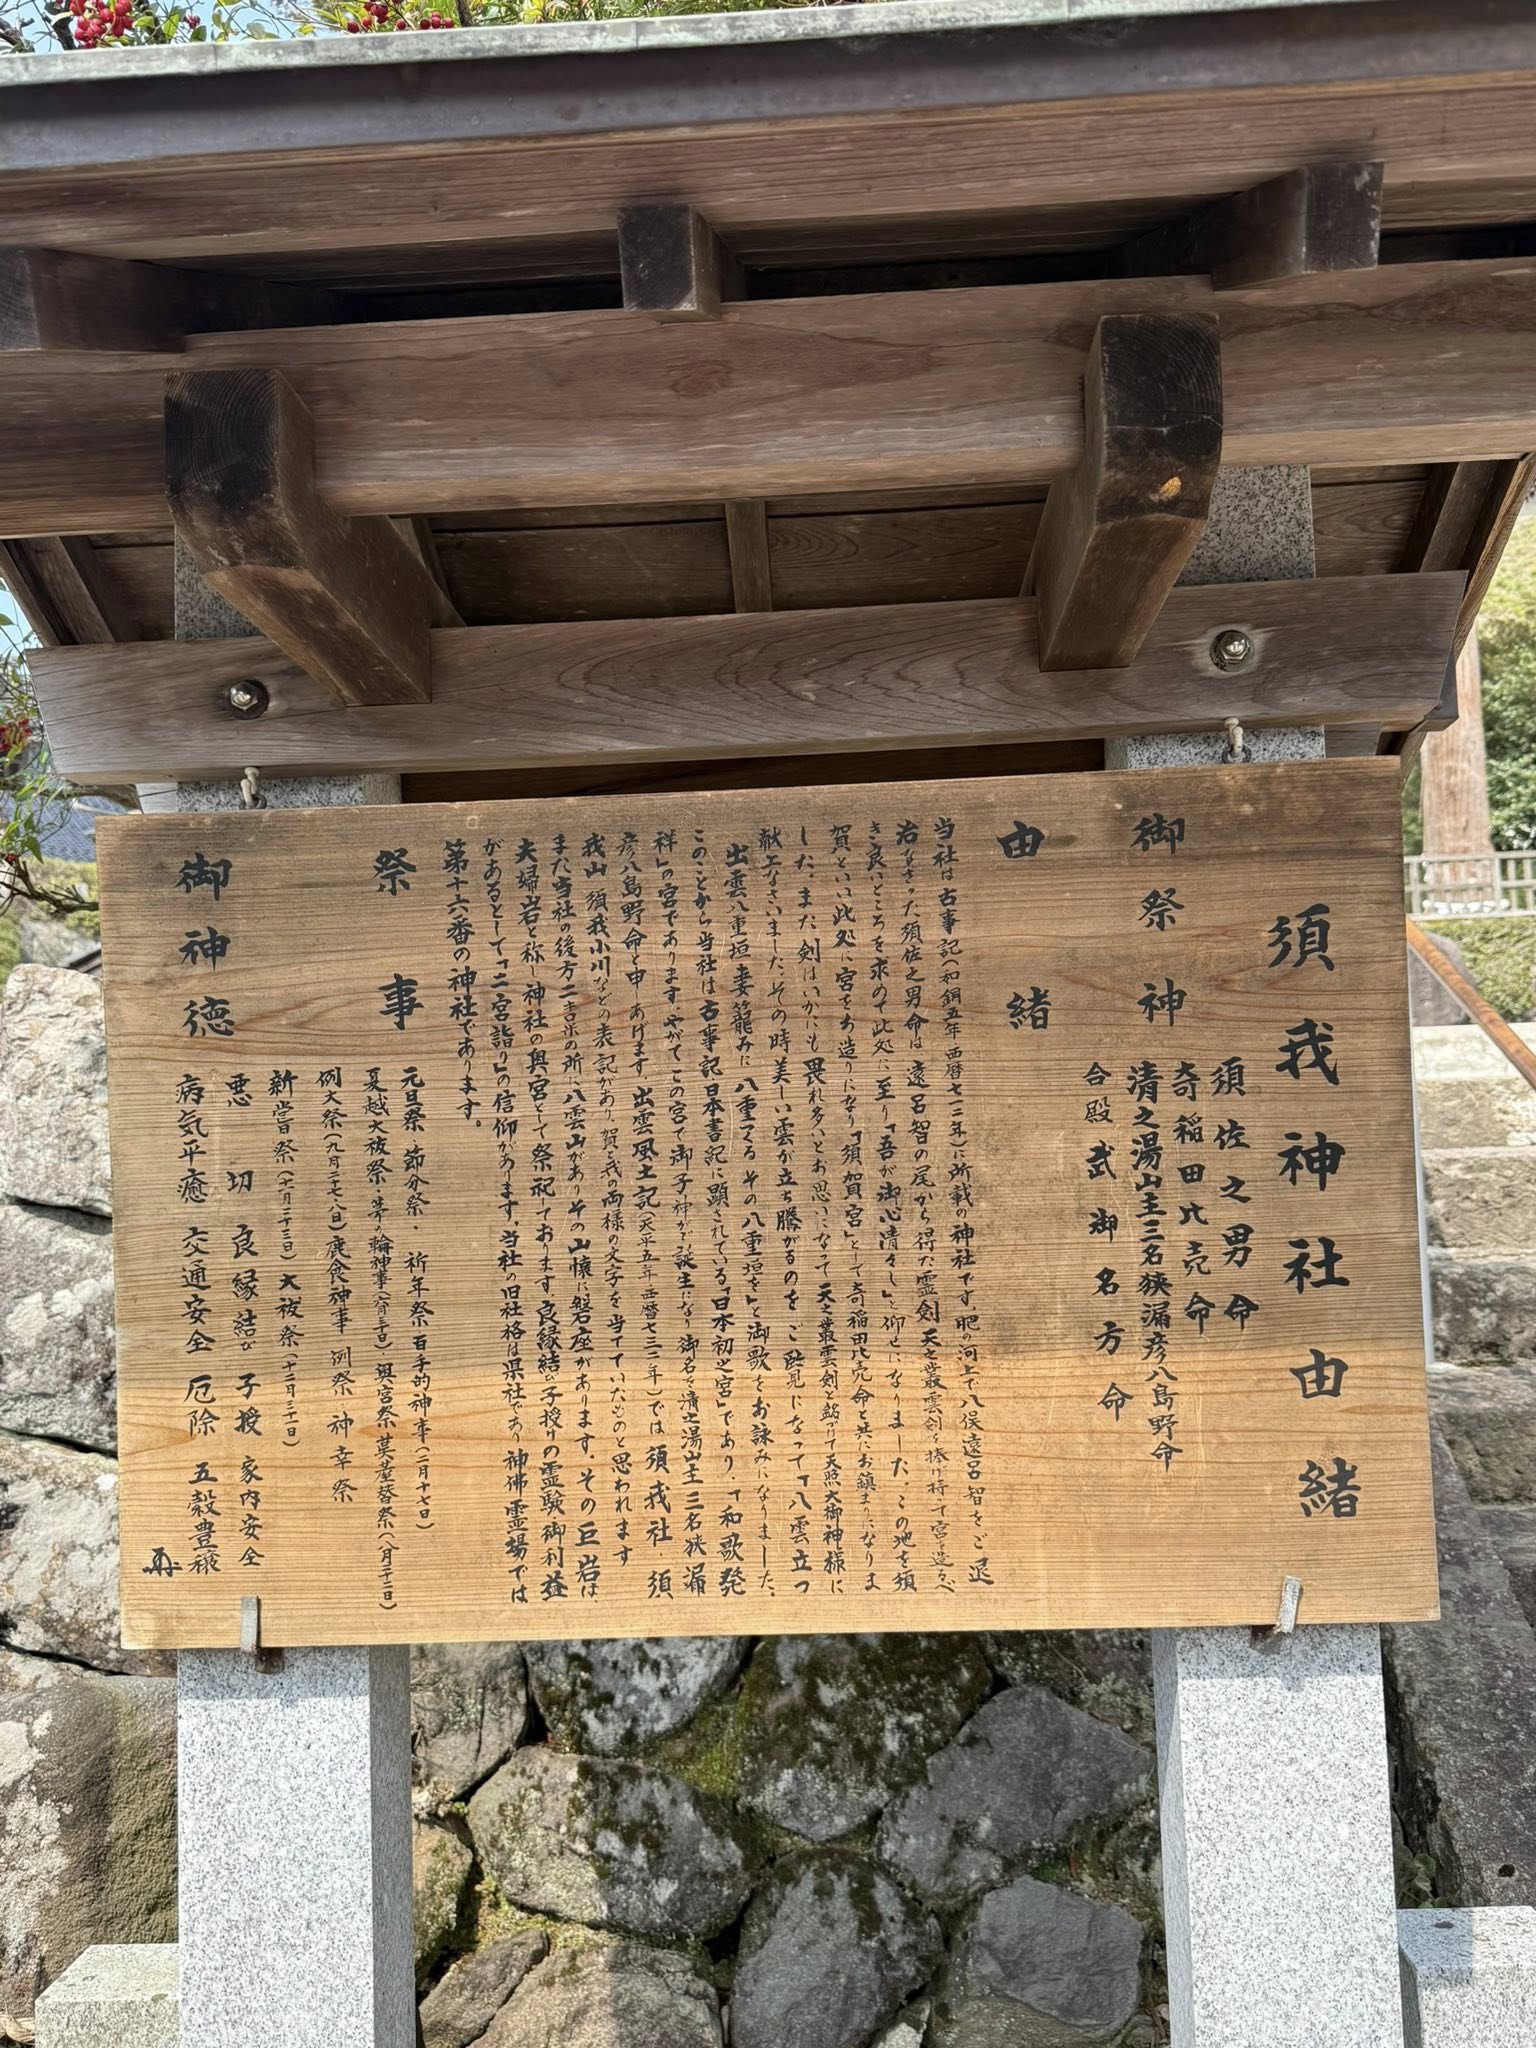 須我神社由緒
御祭神
須佐之男命
奇稲田比売命
清之湯山主三名狭漏彦八島野命
合殿 武御名方命
由緒
当社は古事記(和銅五年西暦七一二年)に所載の神社です。肥の河上で八俣遠呂智をご退
治なさった須佐之男命は 遠呂智の尾から得た霊剣天之叢雲剣を捧げ持って宮を造るべ
き良いところを求めて此処に至り「吾が御心清々し」と仰せになりました。この地を須
賀といい此処に宮をお造りになり「須賀宮」として奇稲田比売命と共にお鎮まりになりま
した。また剣はいかにも畏れ多いとお思いになって天之叢雲剣と銘づけて天照大御神様に
献上なさいました。その時美しい雲が立ち騰がるのをご覧になって「八雲立つ
出雲八重垣 妻籠みに 八重つくる その八重垣を」と御歌をお詠みになりました。
このことから当社は古事記日本書紀に顕されている「日本初之宮」であり、「和歌発
祥」の宮であります。やがてこの宮で御子神がご誕生になり御名を清之湯山主三名狭漏
彦八島野命と申しあげます。出雲風土記(天平五年西暦七三二年)では須我社・須
我山 須我小川などの表記があり、賀と我の両様の文字を当てていたものと思われます
また当社の後方二吉米の所に八雲山がありその山懐に磐座があります。その巨岩は、
夫婦岩と称し神社の奥宮として祭祀ております。良縁結び子授けの霊験御利益
があるとして「二宮詣り」の信仰があります。当社の旧社格は県社であり神佛霊場では
第十六番の神社であります。
祭事
元旦祭・節分祭・祈年祭 百手的神事(二月十七日)
夏越大祓祭・茅の輪神事(六月三十日)・奥宮祭 茣蓙替祭(八月二十二日)
例大祭(九月二十七・八日)鹿食神事 例祭 神幸祭
新嘗祭(十一月二十三日) 大祓祭(十二月三十一日)
御神徳
悪切 良縁結び 子授 家内安全
病気平癒 交通安全 厄除 五穀豊穣